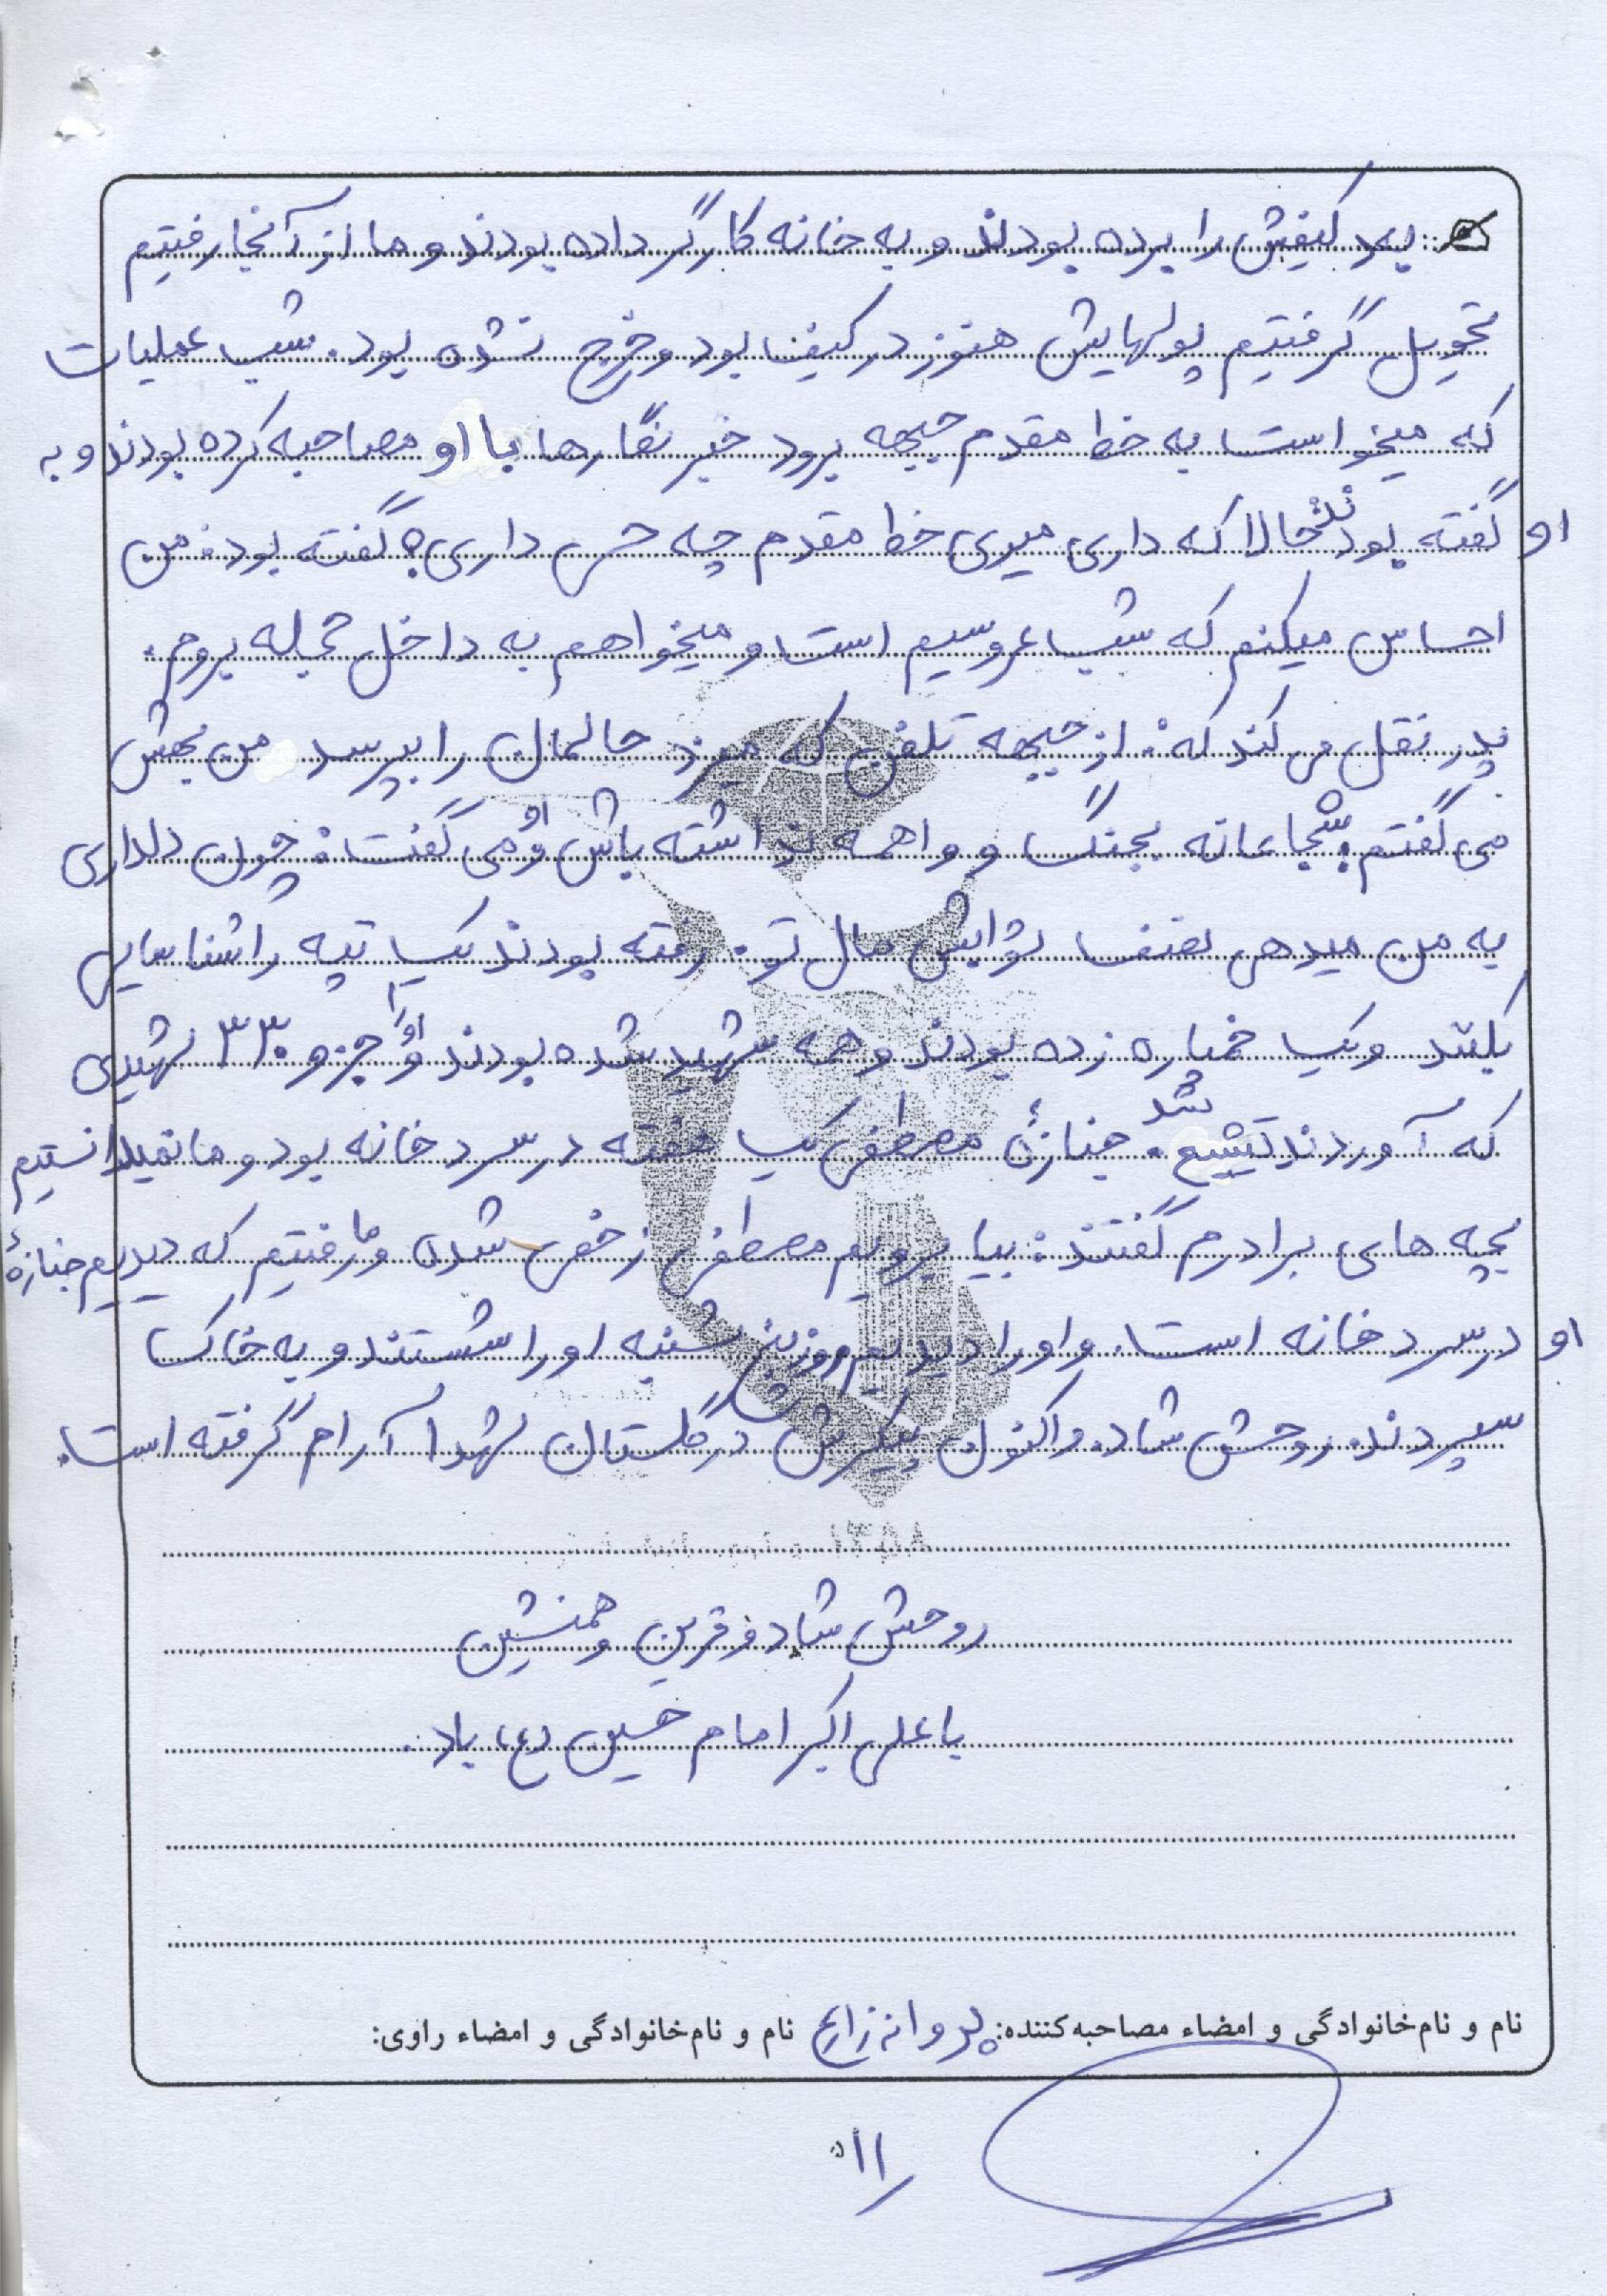 بعد کیفش را برده بودند و به خانه کارگر داده بودند و ما از آنجا رفتیم
تحویل گرفتیم پولهایش هنوز در کیف بود و خرج نشده بود. شب عملیات
که میخواست به خط مقدم جبهه برود خبرنگارها با او مصاحبه کرده بودند و به
او گفته بودند حالا که داری میری خط مقدم چه حس داری؟ گفته بود: من
احساس میکنم که شب عروسیم است و میخواهم به داخل حجله بروم.
پدر نقل می کند که: از جبهه تلفن که میزد حالمان را بپرسد من بهش
می گفتم: شجاعانه بجنگ و واهمه نداشته باش و او می گفت: چون دلداری
به من میدهی نصف ثوابش مال تو. رفته بودند یک تپه را شناسایی
بکنند و یک خمپاره زده بودند و همه شهید شده بودند و او را جزو ۳۳۰ شهیدی
که آوردند تشییع شد. جنازۀ مصطفی یک هفته در سردخانه بود و ما نمیدانستیم
بچه های برادرم گفتند: بیا برویم مصطفی زخمی شده و ما رفتیم که دیدیم جنازۀ
او در سردخانه است. و او را دیدیم روز پنج شنبه او را شستند و به خاک
سپردند. روحش شاد. و اکنون پیکرش در گلستان شهدا آرام گرفته است.
۱۳۵۸
روحش شاد و قرین و همنشین
با علی اکبر امام حسین (ع) باد.
نام و نام‌خانوادگی و امضاء مصاحبه‌کننده: پروانه زارع نام و نام‌خانوادگی و امضاء راوی: